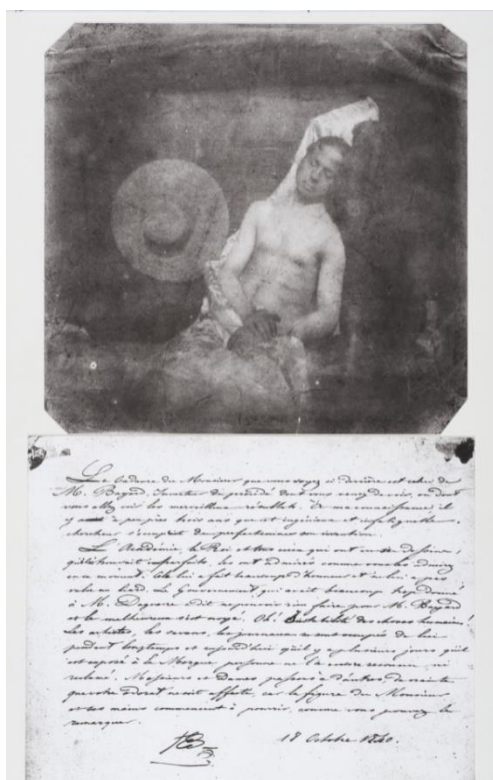 Le cadavre du Monsieur que vous voyez ci derrière est celui de
M. Bayard, inventeur du procédé dont vous venez de voir, ou dont
vous allez voir les merveilleux résultats. à ma connaissance, il
y a à peu près trois ans que cet ingénieux et infatigable
chercheur s'occupait de perfectionner son invention.
L'Académie, le Roi et tous ceux qui ont vu ses dessins,
imparfaits, les ont admirés comme vous les admirez
en ce moment. Cela lui a fait beaucoup d'honneur et ne lui a pas
valu un liard. Le Gouvernement, qui avait beaucoup trop donné
à M. Daguerre a dit ne pouvoir rien faire pour M. Bayard
et le malheureux s'est noyé. Oh! des choses humaines!
Les artistes, les savants, les journaux se sont occupés de lui
pendant longtemps et aujourd'hui qu'il y a plusieurs jours qu'il
est exposé à la Morgue, personne ne l'a encore reconnu, ni
réclamé. Messieurs et Dames, passons à d'autres, de crainte
que votre odorat ne soit affecté, car la figure du Monsieur
et ses mains commencent à pourrir, comme vous pouvez le
remarquer.
18 Octobre 1840.